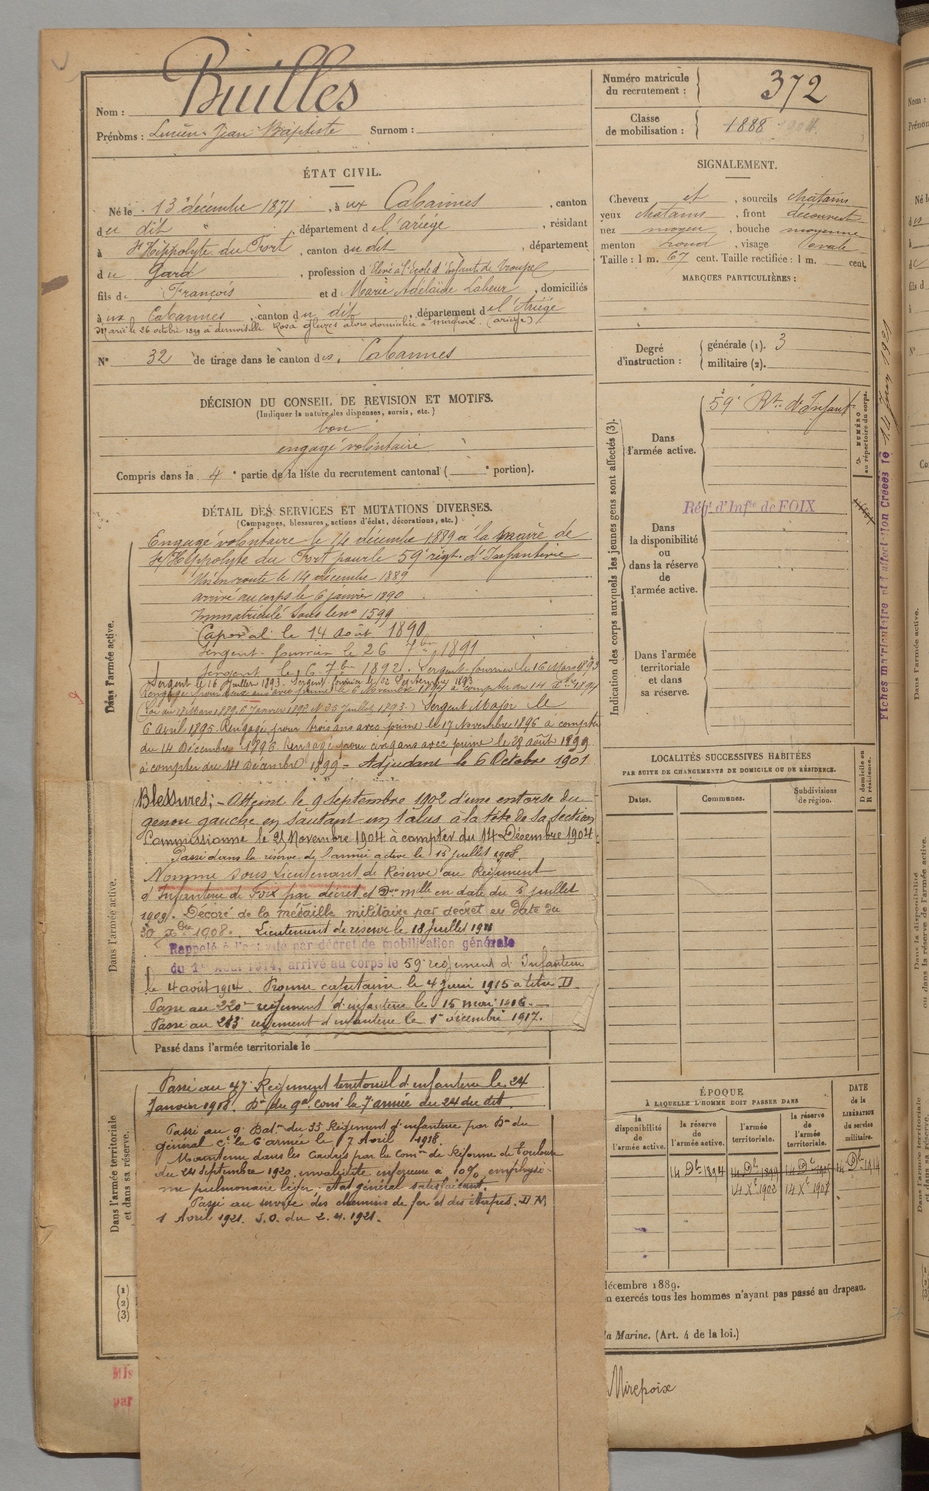 Nom : Builles
Prénoms : Lucien Jean Baptiste Surnom :
Numéro matricule du recrutement : 372
Classe de mobilisation : 1888 1904
ÉTAT CIVIL.
Né le 13 décembre 1871, à ux Cabannes, canton
du dit, département de l'ariège, résidant
à St Hippolyte du Fort, canton du dit, département
du Gard, profession d'Elève à l'Ecole d'Enfants de Troupe
fils de François et de Marie Adélaïde Labeur, domiciliés
à ux Cabannes, canton du dit, département de l'Ariège
Marié le 26 octobre à demoiselle Rosa alors domiciliée à mirepoix (ariège)
N° 32 de tirage dans le canton des Cabannes
SIGNALEMENT.
Cheveux et, sourcils chatains
yeux chatains, front découvert
nez moyen, bouche moyenne
menton rond, visage ovale
Taille : 1 m. 67 cent. Taille rectifiée : 1 m. cent.
MARQUES PARTICULIÈRES :
Degré d'instruction : générale (1). 3
militaire (2).
DÉCISION DU CONSEIL DE REVISION ET MOTIFS.
(Indiquer la nature des dispenses, sursis, etc.)
bon
engagé volontaire
Compris dans la 4e partie de la liste du recrutement cantonal ( e portion).
DÉTAIL DES SERVICES ET MUTATIONS DIVERSES.
(Campagnes, blessures, actions d'éclat, décorations, etc.)
Dans l'armée active.
Engagé volontaire le 14 décembre 1889 à la mairie de
St Hippolyte du Fort pour le 59e régt d'Infanterie
Mis en route le 14 décembre 1889
arrivé au corps le 6 janvier 1890
Immatriculé sous le no 1599
Caporal le 14 Août 1890
Sergent-fourrier le 26 7bre 1891
Sergent le 6 7bre 1892. Sergent-fourrier le 16 Mars 1893
Sergent le 16 Juillet 1893. Sergent fourrier le 1893
Rengagé pour deux ans avec prime le 6 Novembre 1894 à compter du 14 Xbre 1894
(Loi du 18 Mars 1889, 6 Janvier 1892 & 25 Juillet 1893.) Sergent Major le
6 Avril 1895. Rengagé pour trois ans avec prime le 17 Novembre 1896 à compter
du 14 Décembre 1896. Rengagé pour cinq ans avec prime le 28 août 1899
à compter du 14 Décembre 1899 - Adjudant le 6 Octobre 1901
Blessures : - Atteint le 9 Septembre 1902 d'une entorse du
genou gauche en sautant un talus à la tête de sa section
Commissionné le 21 Novembre 1904 à compter du 14 Décembre 1904.
Passé dans la réserve de l'armée active le 15 juillet 1908.
Nommé Sous Lieutenant de Réserve au Régiment
d'Infanterie de Foix par décret et Don mlle en date du 5 juillet
1908. Décoré de la médaille militaire par décret en date du
30 Xbre 1908. Lieutenant de réserve le 18 Juillet 1911
Rappelé à l'activité par décret de mobilisation générale
du 1er Août 1914, arrivé au corps le 59e régiment d'Infanterie
le 4 août 1914. Promu capitaine le 4 Juin 1915 à titre D.
Passé au 220e régiment d'infanterie le 15 mai 1916.
Passé au 213e régiment d'infanterie le 1er décembre 1917.
Passé dans l'armée territoriale le
Dans l'armée territoriale et dans sa réserve.
Passé au 47e Régiment territorial d'infanterie le 24
Janvier 1918. Don du gal comt la 7e armée du 24 du dit.
Passé au 9e Batn du 33e Régiment d'infanterie par Don du
général ct la 6e armée le 17 Avril 1918.
Maintenu dans les Cadres par la Comon de Réforme de Toulouse
du 24 septembre 1920, invalidité inférieure à 10% emphysè-
me pulmonaire léger. état général satisfaisant.
Passé au service des chemins de fer et des étapes. D.M.
1 Avril 1921. J.O. du 2.4.1921.
(1)
(2)
(3)
Indication des corps auxquels les jeunes gens sont affectés (3).
NUMÉRO au répertoire du corps.
Dans l'armée active. 59e Rt d'Infant.
Dans la disponibilité ou dans la réserve de l'armée active. Régt d'Infie de FOIX
Dans l'armée territoriale et dans sa réserve.
LOCALITÉS SUCCESSIVES HABITÉES
PAR SUITE DE CHANGEMENTS DE DOMICILE OU DE RÉSIDENCE.
Dates. Communes. Subdivisions de région. D domicile ou R résidence.
ÉPOQUE
À LAQUELLE L'HOMME DOIT PASSER DANS
DATE de la LIBÉRATION du service militaire.
la disponibilité de l'armée active. la réserve de l'armée active. l'armée territoriale. la réserve de l'armée territoriale.
14 Dbre 1894 14 Dbre 1899 14 Dbre 14 Dbre 1914
14 Xbre 1902 14 Xbre 1908
décembre 1889.
n exercés tous les hommes n'ayant pas passé au drapeau.
la Marine. (Art. 4 de la loi.)
Mirepoix
Fiches matriculaire et d'affectation Créées le 14
Mis
par